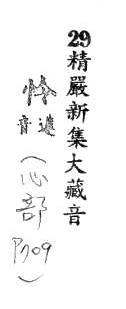 29精嚴新集大藏音
音遴
(心部
P709)